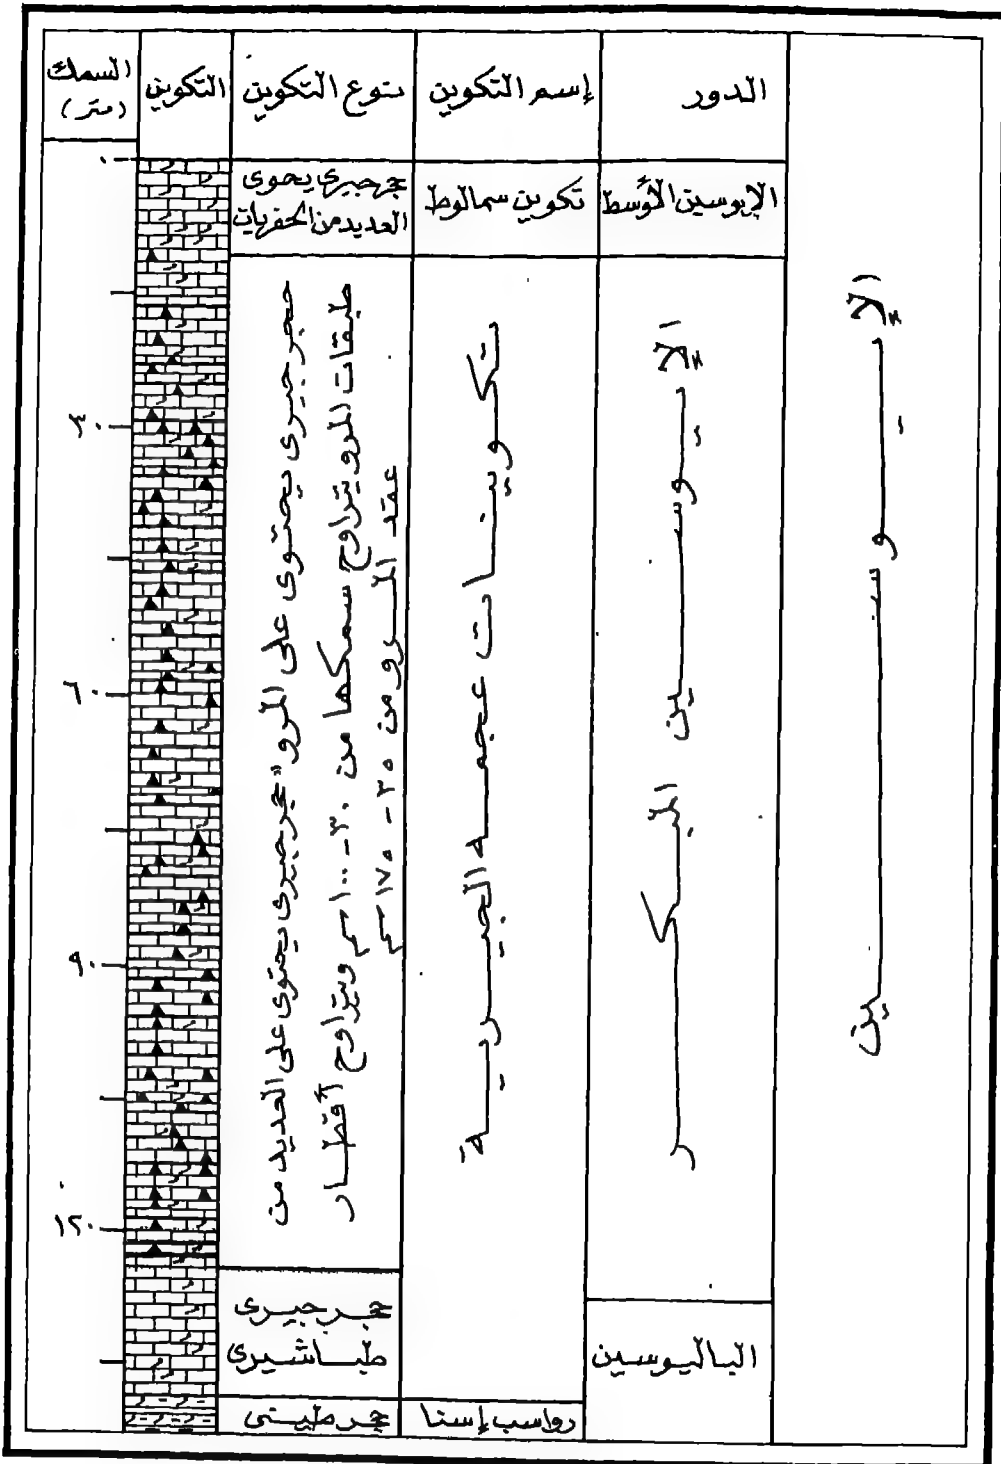 الدور
إسم التكوين
نوع التكوين
التكوين
السمك
(متر)
الإيوسين
الإيوسين الأوسط
تكوين سمالوط
حجر جيرى يحوى
العديد من الحفريات
الإيوسين المبكر
تكوينات عجمه الجيرية
حجر جيرى يحتوى على المرو "حجر جيرى يحتوى على العديد من
طبقات المرو يتراوح سمكها من ٣٠ - ١٠٠ سم ويتراوح أقطار
عقد المرو من ٣٥ - ١٧٥ سم
حجر جيرى
طباشيرى
الباليوسين
رواسب إسنا
حجر طينى
٠
٣٠
٦٠
٩٠
١٢٠